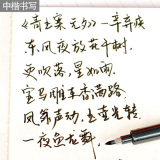 中楷书写
《青玉案·元夕》—辛弃疾
东风夜放花千树
更吹落、星如雨
宝马雕车香满路
凤箫声动，玉壶光转
一夜鱼龙舞